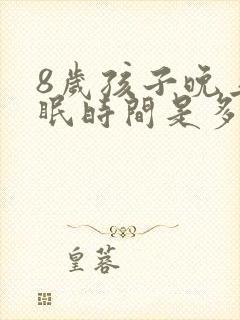 8歲孩子晚
眠時間是多
皇蓉